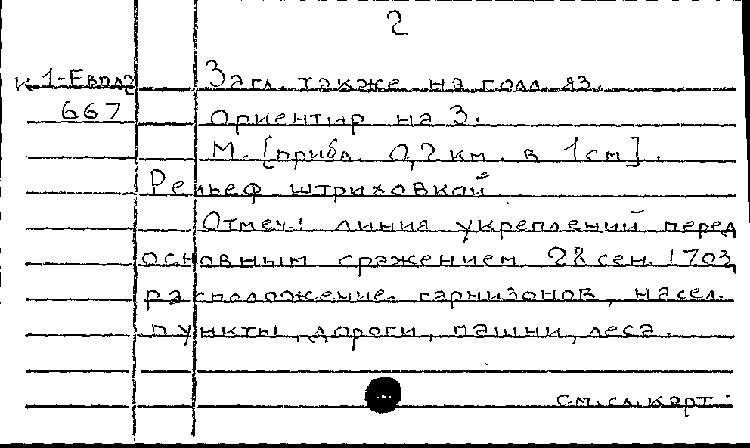 2
К 1-Евпл2 Загл. также на голл. яз.
667 Ориентир на З.
М. [прибл. 0,2 км. в 1 см].
Рельеф штриховкой
Отмеч.: линия укреплений перед
основным сражением 28 сен. 1703,
расположение гарнизонов, насел.
пункты, дороги, пашни, леса.
см.сл.карт.